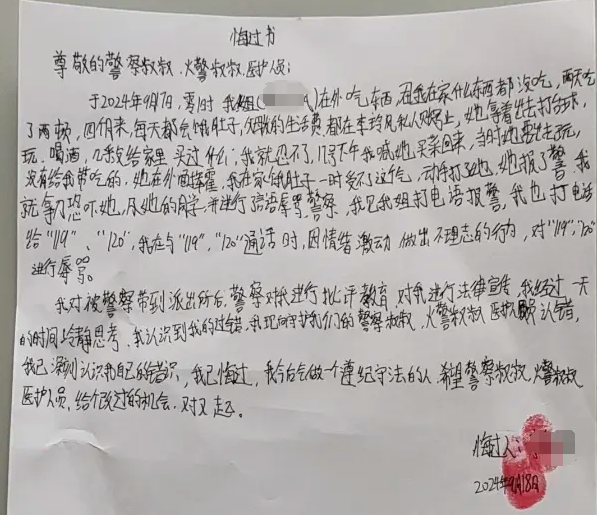 悔过书
尊敬的警察叔叔、火警叔叔、医护人员：
于2024年9月7日，零时 我姐()在外吃东西，在我在家什么东西都没吃，两天吃
了两顿，四个月来，每天都会饿肚子，父親的生活费都在李玲凡私人账号上，她拿着出去打台球、
玩、喝酒，几乎没给家里买过什么，我就忍不了，几号下午我喊她买菜回来，当时她要出去玩，
没有给我带吃的，她在外面，我在家饿肚子一时受不了这个气，动手打了她，她报了警，我
就拿刀恐吓她，及她的同学，并进行言语辱骂警察，我见我姐打电话报警，我也打电话
给"119"、"120"，我在与"119"，"120"通话时，因情绪激动，做出不理志的行为，对"119"，"120"
进行辱骂。
我对被警察带到派出所后，警察对我进行批评教育，对我进行法律宣传，我经过一天
的时间冷静思考，我认识到我的过错，我现向守护我们的警察叔叔，火警叔叔 医护人员认错，
我已深刻认识我自己的错识，我已悔过，我今后会做一个遵纪守法的人，希望警察叔叔，火警叔叔
医护人员，给个改过的机会，对不起。
悔过人：
2024年9月18日